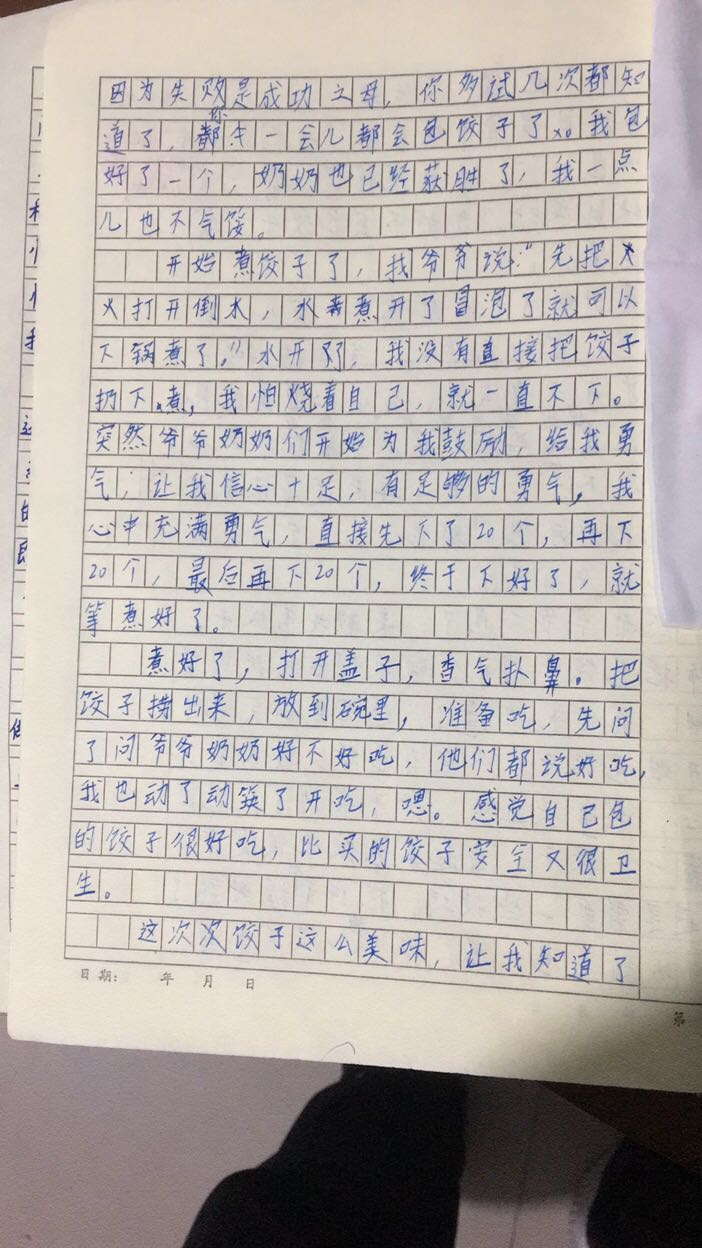 因为失败是成功之母，你多试几次都知
道了，你都不一会儿都会包饺子了。我包
好了一个，奶奶也已经获胜了，我一点
儿也不气馁。
开始煮饺子了，我爷爷说："先把
火打开倒水，水煮开了冒泡了就可以
下锅煮了。"水开了，我没有直接把饺子
扔下煮，我怕烧着自己，就一直不下。
突然爷爷奶奶们开始为我鼓励，给我勇
气，让我信心十足，有足够的勇气，我
心中充满勇气，直接先下了20个，再下
20个，最后再下20个，终于下好了，就
等煮好了。
煮好了，打开盖子，香气扑鼻。把
饺子捞出来，放到碗里，准备吃，先问
了问爷爷奶奶好不好吃，他们都说好吃，
我也动了动筷了开吃，嗯。感觉自己包
的饺子很好吃，比买的饺子安全又很卫
生。
这次次饺子这么美味，让我知道了
日期： 年 月 日
第